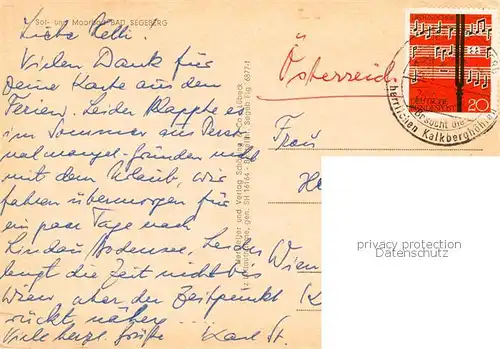 Sol- und Moorbad BAD SEGEBERG
Liebe Nelli!
Vielen Dank für
Deine Karte aus den
Ferien. Leider klappte es
im Sommer aus Perso
nalmangel-gründen nicht
mit dem Urlaub, wir
fahren übermorgen für
ein paar Tage nach
Lindau Bodensee,
langt die Zeit nicht bis
Wien, aber der Zeitpunkt
rückt näher...
Viele herzl. Grüße Karl St.
Österreich
Frau
Wien
DEUTSCHE
BUNDESPOST
20
Besucht die
herrlichen Kalkberghöhlen
privacy protection
Datenschutz